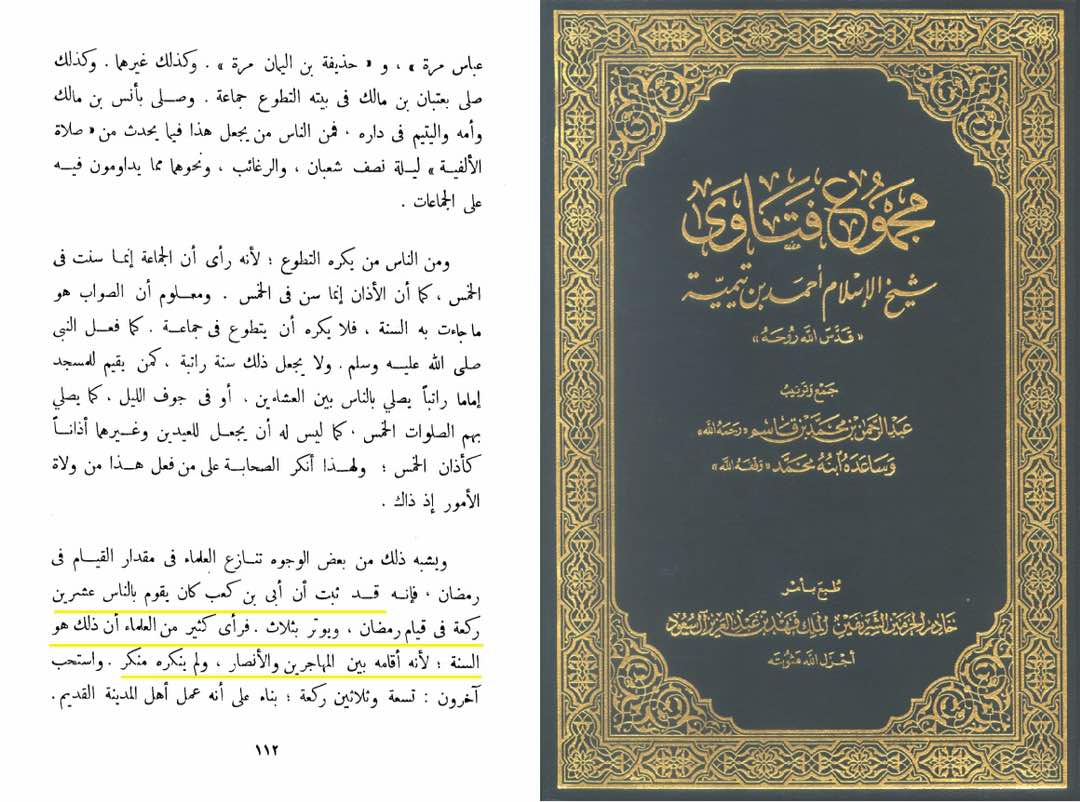 عباس مرة » ، و « حذيفة بن اليمان مرة » . وكذلك غيرهما . وكذلك
صلى بعتبان بن مالك فى بيته التطوع جماعة . وصلى بأنس بن مالك
وأمه واليتيم فى داره . فمن الناس من يجعل هذا فيما يحدث من « صلاة
الألفية » ليلة نصف شعبان ، والرغائب ، ونحوهما مما يداومون فيه
على الجماعات .
ومن الناس من يكره التطوع ؛ لأنه رأى أن الجماعة إنما سنت فى
الخمس ، كما أن الأذان إنما سن فى الخمس . ومعلوم أن الصواب هو
ما جاءت به السنة ، فلا يكره أن يتطوع فى جماعة . كما فعل النبى
صلى الله عليه وسلم . ولا يجعل ذلك سنة راتبة ، كمن يقيم للمسجد
إماما راتباً يصلي بالناس بين العشاءين . أو فى جوف الليل ، كما يصلي
بهم الصلوات الخمس ، كما ليس له أن يجعل للعيدين وغيرهما أذاناً
كأذان الخمس ؛ ولهذا أنكر الصحابة على من فعل هذا من ولاة
الأمور إذ ذاك .
ويشبه ذلك من بعض الوجوه تنازع العلماء فى مقدار القيام فى
رمضان ، فإنه قد ثبت أن أبى بن كعب كان يقوم بالناس عشرين
ركعة فى قيام رمضان ، ويوتر بثلاث . فرأى كثير من العلماء أن ذلك هو
السنة ؛ لأنه أقامه بين المهاجرين والأنصار ، ولم ينكره منكر . واستحب
آخرون : تسعة وثلاثين ركعة ؛ بناء على أنه عمل أهل المدينة القديم .
١١٢
مجموع فتاوى
شيخ الإسلام أحمد بن تيمية
« قدس الله روحه »
جمع وترتيب
عبد الرحمن بن محمد بن قاسم « رحمه الله »
وساعده ابنه محمد « وفقه الله »
طبع بأمر
خادم الحرمين الشريفين الملك فهد بن عبد العزيز آل سعود
أجزل الله مثوبته